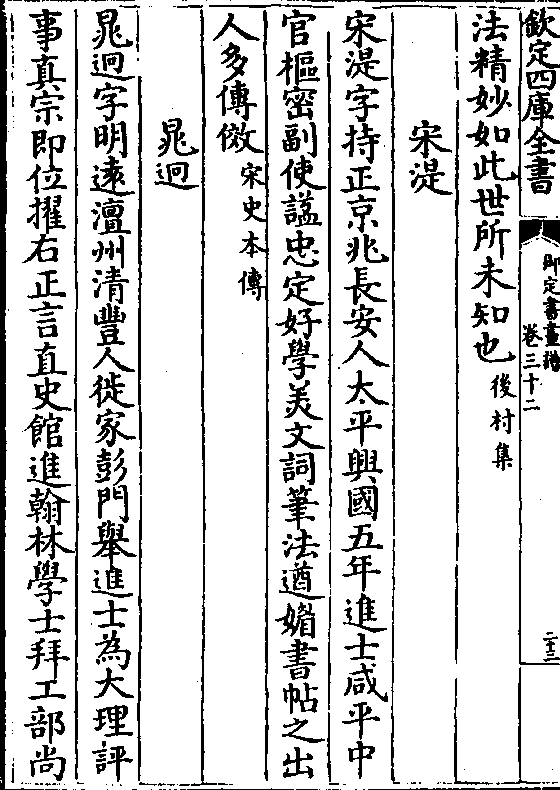 欽定四庫全書
御定書畫譜
卷三十二
二十三
法精妙如此世所未知也後村集
宋湜
宋湜字持正京兆長安人太平興國五年進士咸平中
官樞密副使諡忠定好學美文詞筆法遒媚書帖之出
人多傳傚宋史本傳
晁迥
晁迥字明遠澶州清豐人徙家彭門舉進士為大理評
事真宗即位擢右正言直史館進翰林學士拜工部尚